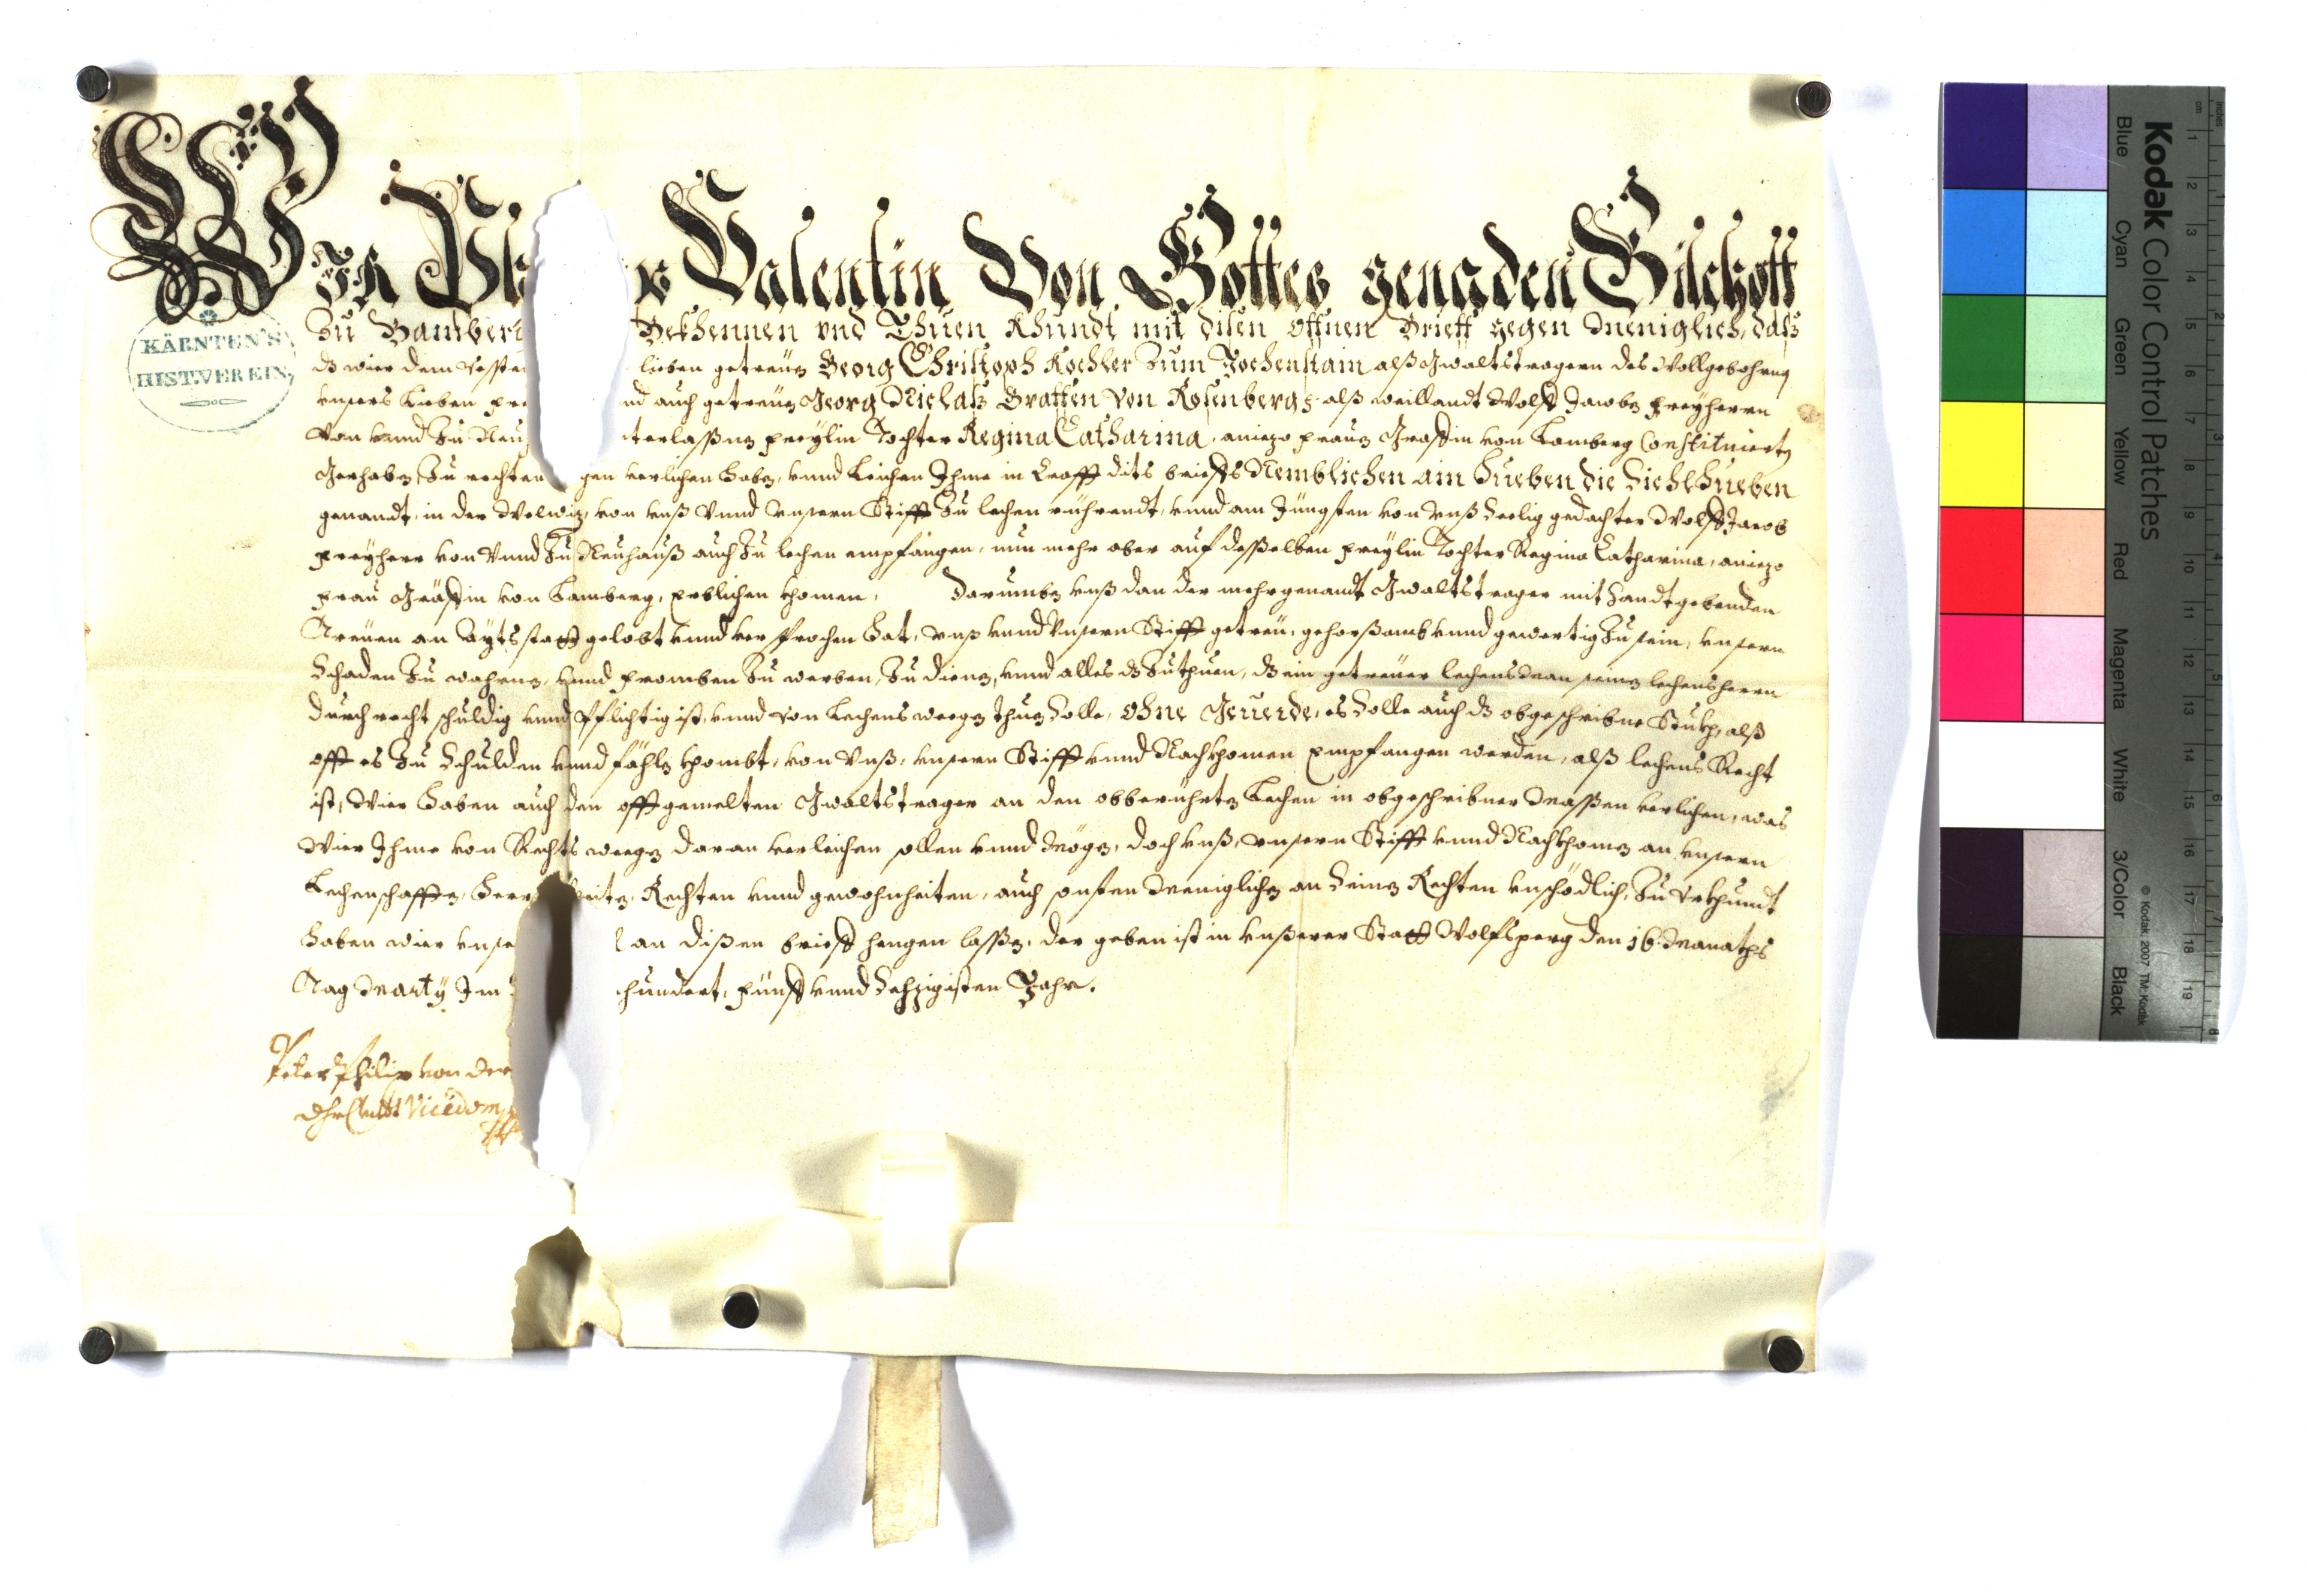 WIR Phi r Valentin Von Gottes genaden Bischoff
Zu Bamberg Bekhennen vnd Thuen Khundt mit disen offnen Brieff gegen Meniglich, daß
dz wier dem Vesten lieben getreüen Georg Christoph Kochler Zum Jochenstain alß Gwaltstragern des Wollgebohrnen
vnsers Lieben nd auch getreüen Georg Niclaß Graffen Von Rosenberg alß weillandt Wolff Jacoben Freyherrn
Von vnnd Zu Neu terlaßnen freylin Tochter Regina Catharina, aniezo frauen Gräffin von Lamberg Constituierten
Gerhaben, Zu rechten gen verlichen Haben, vnnd Leichen Ihme in Crafft dits brieffs Nemblichen ain Hueben die Ziehlhueben
genandt, in der Wolwiz, von vnß vnnd vnsern Stifft Zu lechen rührendt, vnnd am Jüngsten von vnß Seelig gedachter Wolff Jacob
freyherr von vnnd Zu Neuhauß auch Zu lechen empfangen, nun mehr aber auf deßelben freylin Tochter Regina Catharina, aniezo
frau Gräffin von Lamberg, Erblichen khomen, Darumben vnß dan der mehrgenandt Gwaltstrager mit Handtgebenden
Treuen an Aytsstatt gelobt vnnd versprochen Hat, vnß vnnd Vnsern Stifft getreu, gehorsamb vnnd gewertig Zu sein, vnsern
Schaden Zu wahrnen, vnnd fromben Zu werben, Zu dienen, vnnd alles dz Zuthuen, dz ein getreuer lechens Man seinen lechensherrn
durch recht schuldig vnnd Pflichtig ist, vnnd von Lechens weegen thuen Solle, ohne Geuerde, es Solle auch dz obgeschribne Stukh, alß
offt es Zu Schulden vnnd fählen khombt, von Vnß, vnsern Stifft vnnd Nachkhomen Empfangen werden, alß lechens Recht
ist, Wier Haben auch den offtgemelten Gwaltstrager an den obberührten Lechen in obgeschribner Massen verlichen, was
Wier Ihme von Rechts weegen daran verleichen sollen vnnd Mögen, doch vnß, vnsern Stifft vnnd Nachkhomen an vnsern
Lechenschafften, Herr heiten, Rechten vnnd gewohnheiten, auch sonsten Meniglichen an Seinen Rechten vnschödlich, Zu Vrkhundt
Haben wier vnse l an dißen brieff hangen laßen, der geben ist in vnßerer Statt Wolfsperg den 16. Monaths
Tag Marty Im hundert, fünff vnnd Sechzigisten Jahr.
Peter Philip von der
Vicedom
KÄRNTEN'S
HIST. VEREIN
Kodak Color Control Patches
Blue Cyan Green Yellow Red Magenta White 3/Color Black
© Kodak, 2007 TM: Kodak
cm 1 2 3 4 5 6 7 8 9 10 11 12 13 14 15 16 17 18 19
inches 1 2 3 4 5 6 7 8